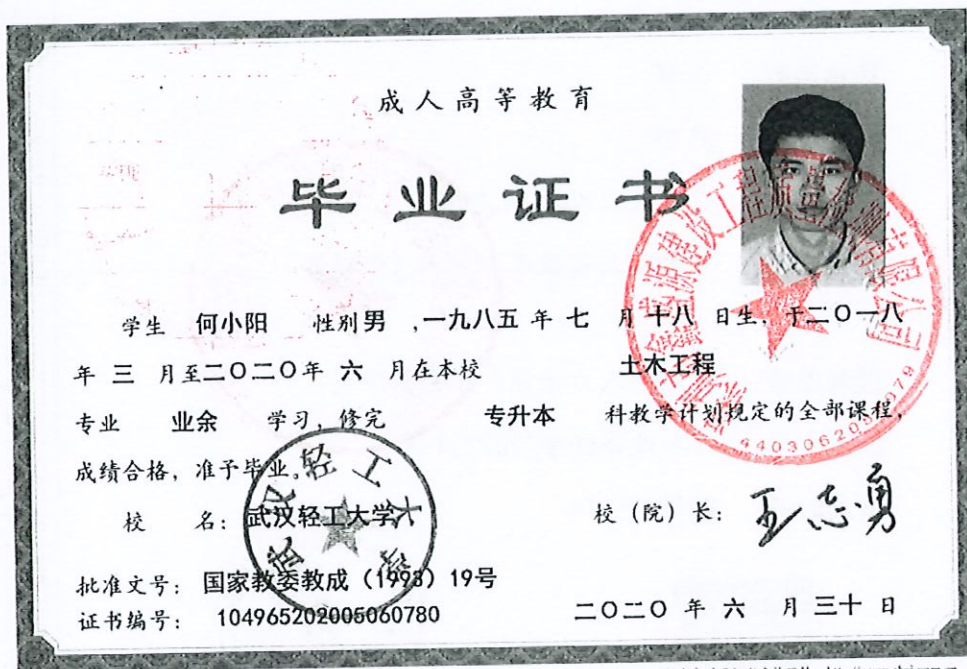 成人高等教育
毕业证书
学生 何小阳 性别 男 ,一九八五 年 七 月 十八 日生, 于二〇一八
年 三 月至二〇二〇年 六 月在本校 土木工程
专业 业余 学习, 修完 专升本 科教学计划规定的全部课程,
成绩合格, 准予毕业。
校 名: 武汉轻工大学
校 (院) 长: 王志勇
批准文号: 国家教委教成 (1993) 19号
证书编号: 104965202005060780
二〇二〇 年 六 月 三十 日
武汉轻工大学